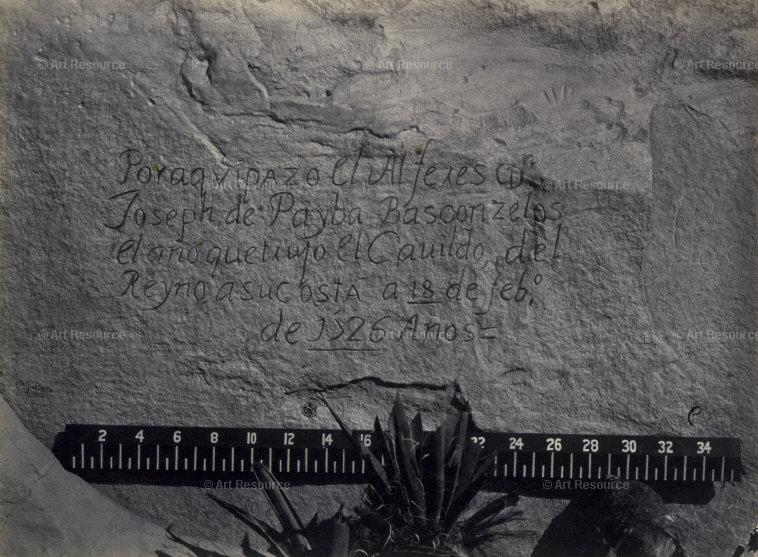 © Art Resource © Art Resource © Art Resource
Por aqVIDAZO el Alferes Dn
Joseph de Payba Basconzelos
el año que trujo el Cauildo del
Reyno a su costa a 18 de feb.o
de 1726 Años=
© Art Resource © Art Resource © Art Resource
© Art Resource © Art Resource © Art Resource
2 4 6 8 10 12 14 16 22 24 26 28 30 32 34
© Art Resource © Art Resource